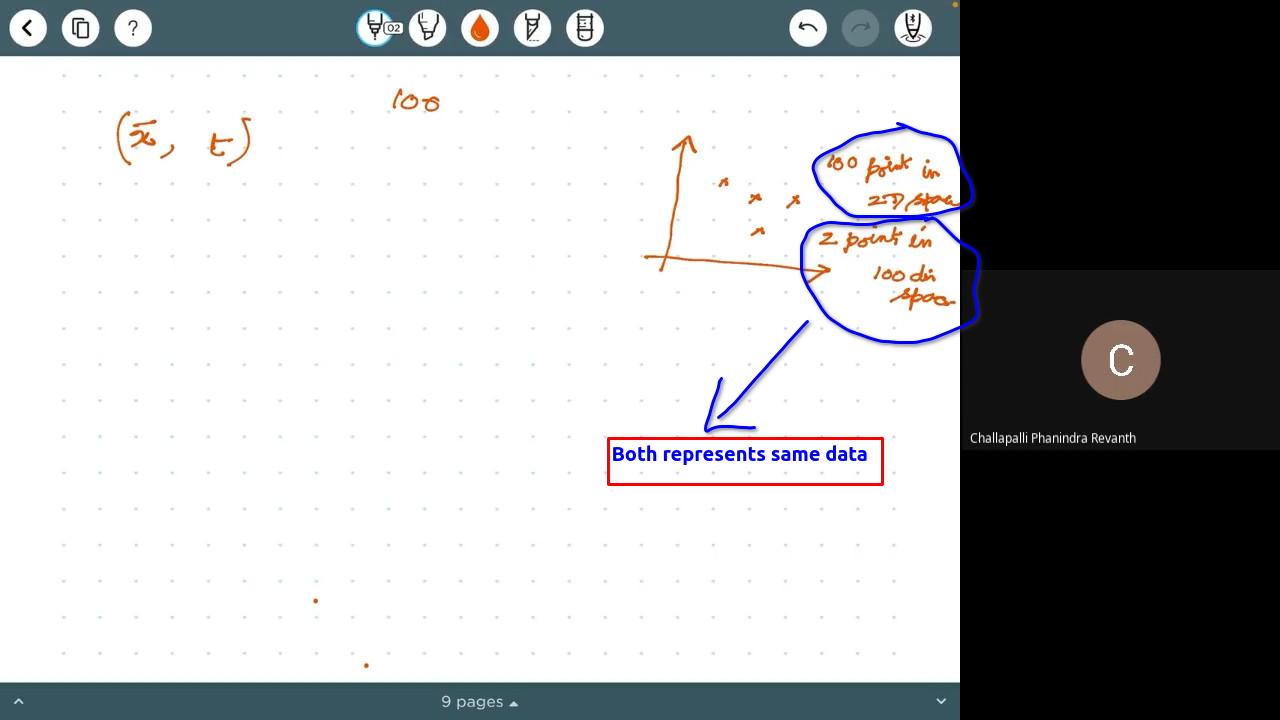 ?
02
100
(x̄, t)
100 point in
2D space
2 point in
100 din
space
Both represents same data
C
Challapalli Phanindra Revanth
9 pages